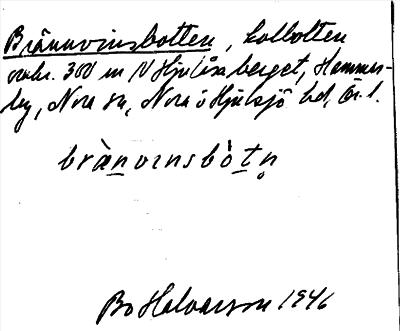 Brännvinsbotten, kolbotten
omkr. 300 m N Hjulåsaberget, Hammar-
by, Nora sn, Nora o Hjulsjö bd, Ör. l.
brànvınsbòtn̥
Bo Halvarson 1946